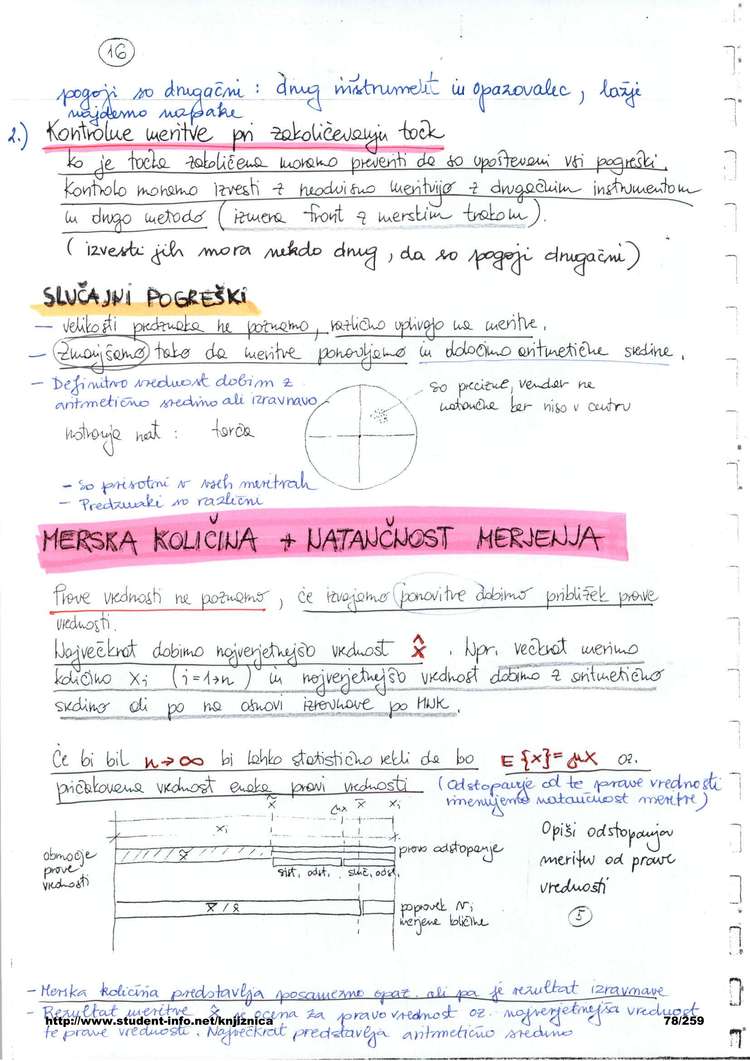 16
pogoji so drugačni : drug inštrument in opazovalec, lažje
najdemo napake
2.) Kontrolne meritve pri zakoličevanju točk
ko je točka zakoličena moramo preveriti da so upoštevani vsi pogreški.
Kontrolo moramo izvesti z neodvisno meritvijo z drugačnim instrumentom
in drugo metodo (izmera front z merskim trakom).
(izvesti jih mora nekdo drug, da so pogoji drugačni)
SLUČAJNI POGREŠKI
- velikosti predznaka ne poznamo, različno vplivajo na meritve.
- Zmanjšamo tako da meritve ponavljamo in določimo aritmetične sredine.
- Definitivno vrednost dobim z
aritmetično sredino ali izravnavo
so precizne, vendar ne
natančne ker niso v centru
notranja nat : tarča
- so prisotni v vseh meritvah
- Predznaki so različni
MERSKA KOLIČINA + NATANČNOST MERJENJA
Prave vrednosti ne poznamo, če izvajamo ponovitve dobimo približek prave
vrednosti.
Največkrat dobimo najverjetnejšo vrednost x̂. Npr. večkrat merimo
količino xi (i=1→n) in najverjetnejšo vrednost dobimo z aritmetično
sredino ali po na osnovi izravnave po MNK.
Če bi bil n→∞ bi lahko statistično rekli da bo E{x}=μx oz.
pričakovana vrednost enaka pravi vrednosti (odstopanje od te prave vrednosti
imenujemo natančnost meritve)
x̃ μx x̄ xi
xi
območje
prave
vrednosti
x̃
pravo odstopanje
sist. odst. sluč. odst.
x̄ / x̂
popravek vi
merjene količine
Opiši odstopanja
meritv od prave
vrednosti
5
- Merska količina predstavlja posamezno opaz. ali pa je rezultat izravnave
- Rezultat meritve x̂ je ocena za pravo vrednost oz. najverjetnejša vrednost
te prave vrednosti. Največkrat predstavlja aritmetično sredino
http://www.student-info.net/knjiznica
78/259